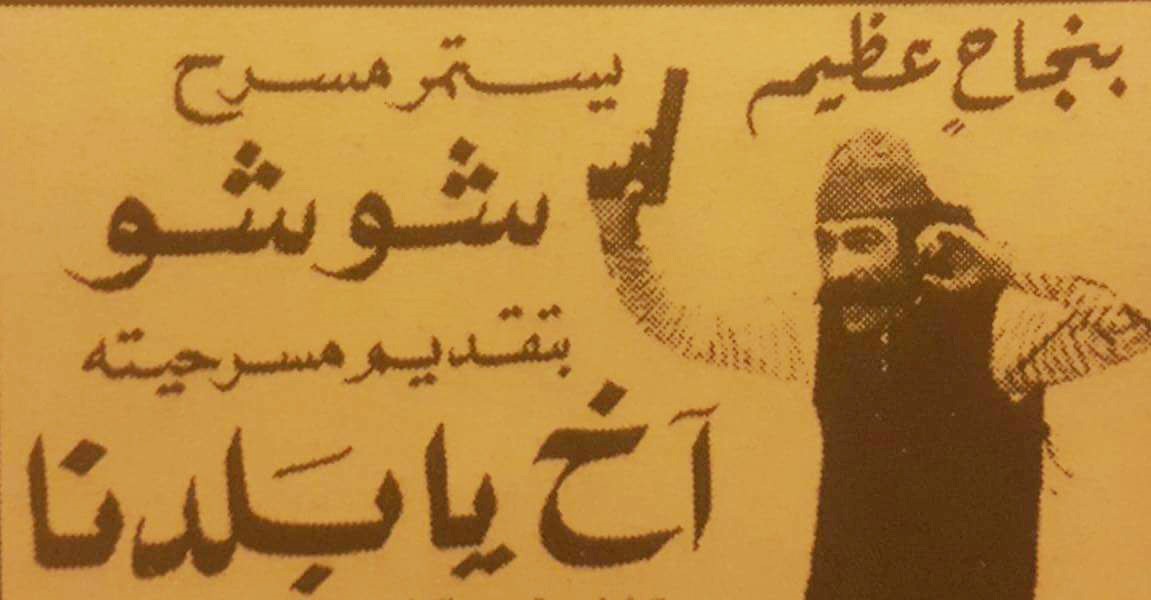 بنجاحٍ عظيم
يستمر مسرح
شوشو
بتقديم مسرحيته
آخ يا بَلدنا